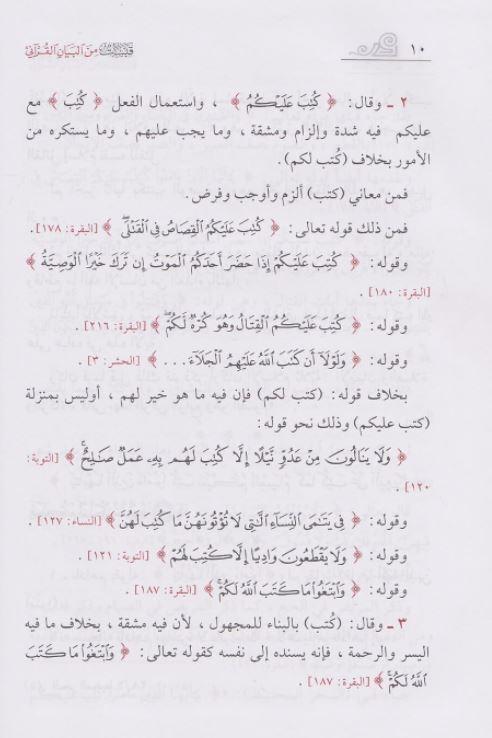 ١٠
قبسات من البيان القرآني
٢ ـ وقال: ﴿ كُتِبَ عَلَيْكُمُ ﴾ ، واستعمال الفعل ﴿ كُتِبَ ﴾ مع
عليكم فيه شدة وإلزام ومشقة ، وما يجب عليهم ، وما يستكره من
الأمور بخلاف (كُتب لكم).
فمن معاني (كتب) ألزم وأوجب وفرض.
فمن ذلك قوله تعالى: ﴿ كُتِبَ عَلَيْكُمُ ٱلْقِصَاصُ فِى ٱلْقَتْلَى ﴾ [البقرة: ١٧٨].
وقوله: ﴿ كُتِبَ عَلَيْكُمْ إِذَا حَضَرَ أَحَدَكُمُ ٱلْمَوْتُ إِن تَرَكَ خَيْرًا ٱلْوَصِيَّةُ ﴾
[البقرة: ١٨٠] .
وقوله: ﴿ كُتِبَ عَلَيْكُمُ ٱلْقِتَالُ وَهُوَ كُرْهٌ لَّكُمْ ﴾ [البقرة: ٢١٦] .
وقوله: ﴿ وَلَوْلَآ أَن كَتَبَ ٱللَّهُ عَلَيْهِمُ ٱلْجَلَآءَ . . . ﴾ [الحشر: ٣].
بخلاف قوله: (كتب لكم) فإن فيه ما هو خير لهم ، أوليس بمنزلة
(كتب عليكم) وذلك نحو قوله:
﴿ وَلَا يَنَالُونَ مِنْ عَدُوٍّ نَّيْلًا إِلَّا كُتِبَ لَهُم بِهِۦ عَمَلٌ صَٰلِحٌ ﴾ [التوبة:
١٢٠] .
وقوله: ﴿ فِى يَتَٰمَى ٱلنِّسَآءِ ٱلَّٰتِى لَا تُؤْتُونَهُنَّ مَا كُتِبَ لَهُنَّ ﴾ [النساء: ١٢٧] .
وقوله: ﴿ وَلَا يَقْطَعُونَ وَادِيًا إِلَّا كُتِبَ لَهُمْ ﴾ [التوبة: ١٢١] .
وقوله: ﴿ وَٱبْتَغُوا۟ مَا كَتَبَ ٱللَّهُ لَكُمْ ﴾ [البقرة: ١٨٧] .
٣ ـ وقال: (كُتب) بالبناء للمجهول ، لأن فيه مشقة ، بخلاف ما فيه
اليسر والرحمة ، فإنه يسنده إلى نفسه كقوله تعالى: ﴿ وَٱبْتَغُوا۟ مَا كَتَبَ
ٱللَّهُ لَكُمْ ﴾ [البقرة: ١٨٧] .